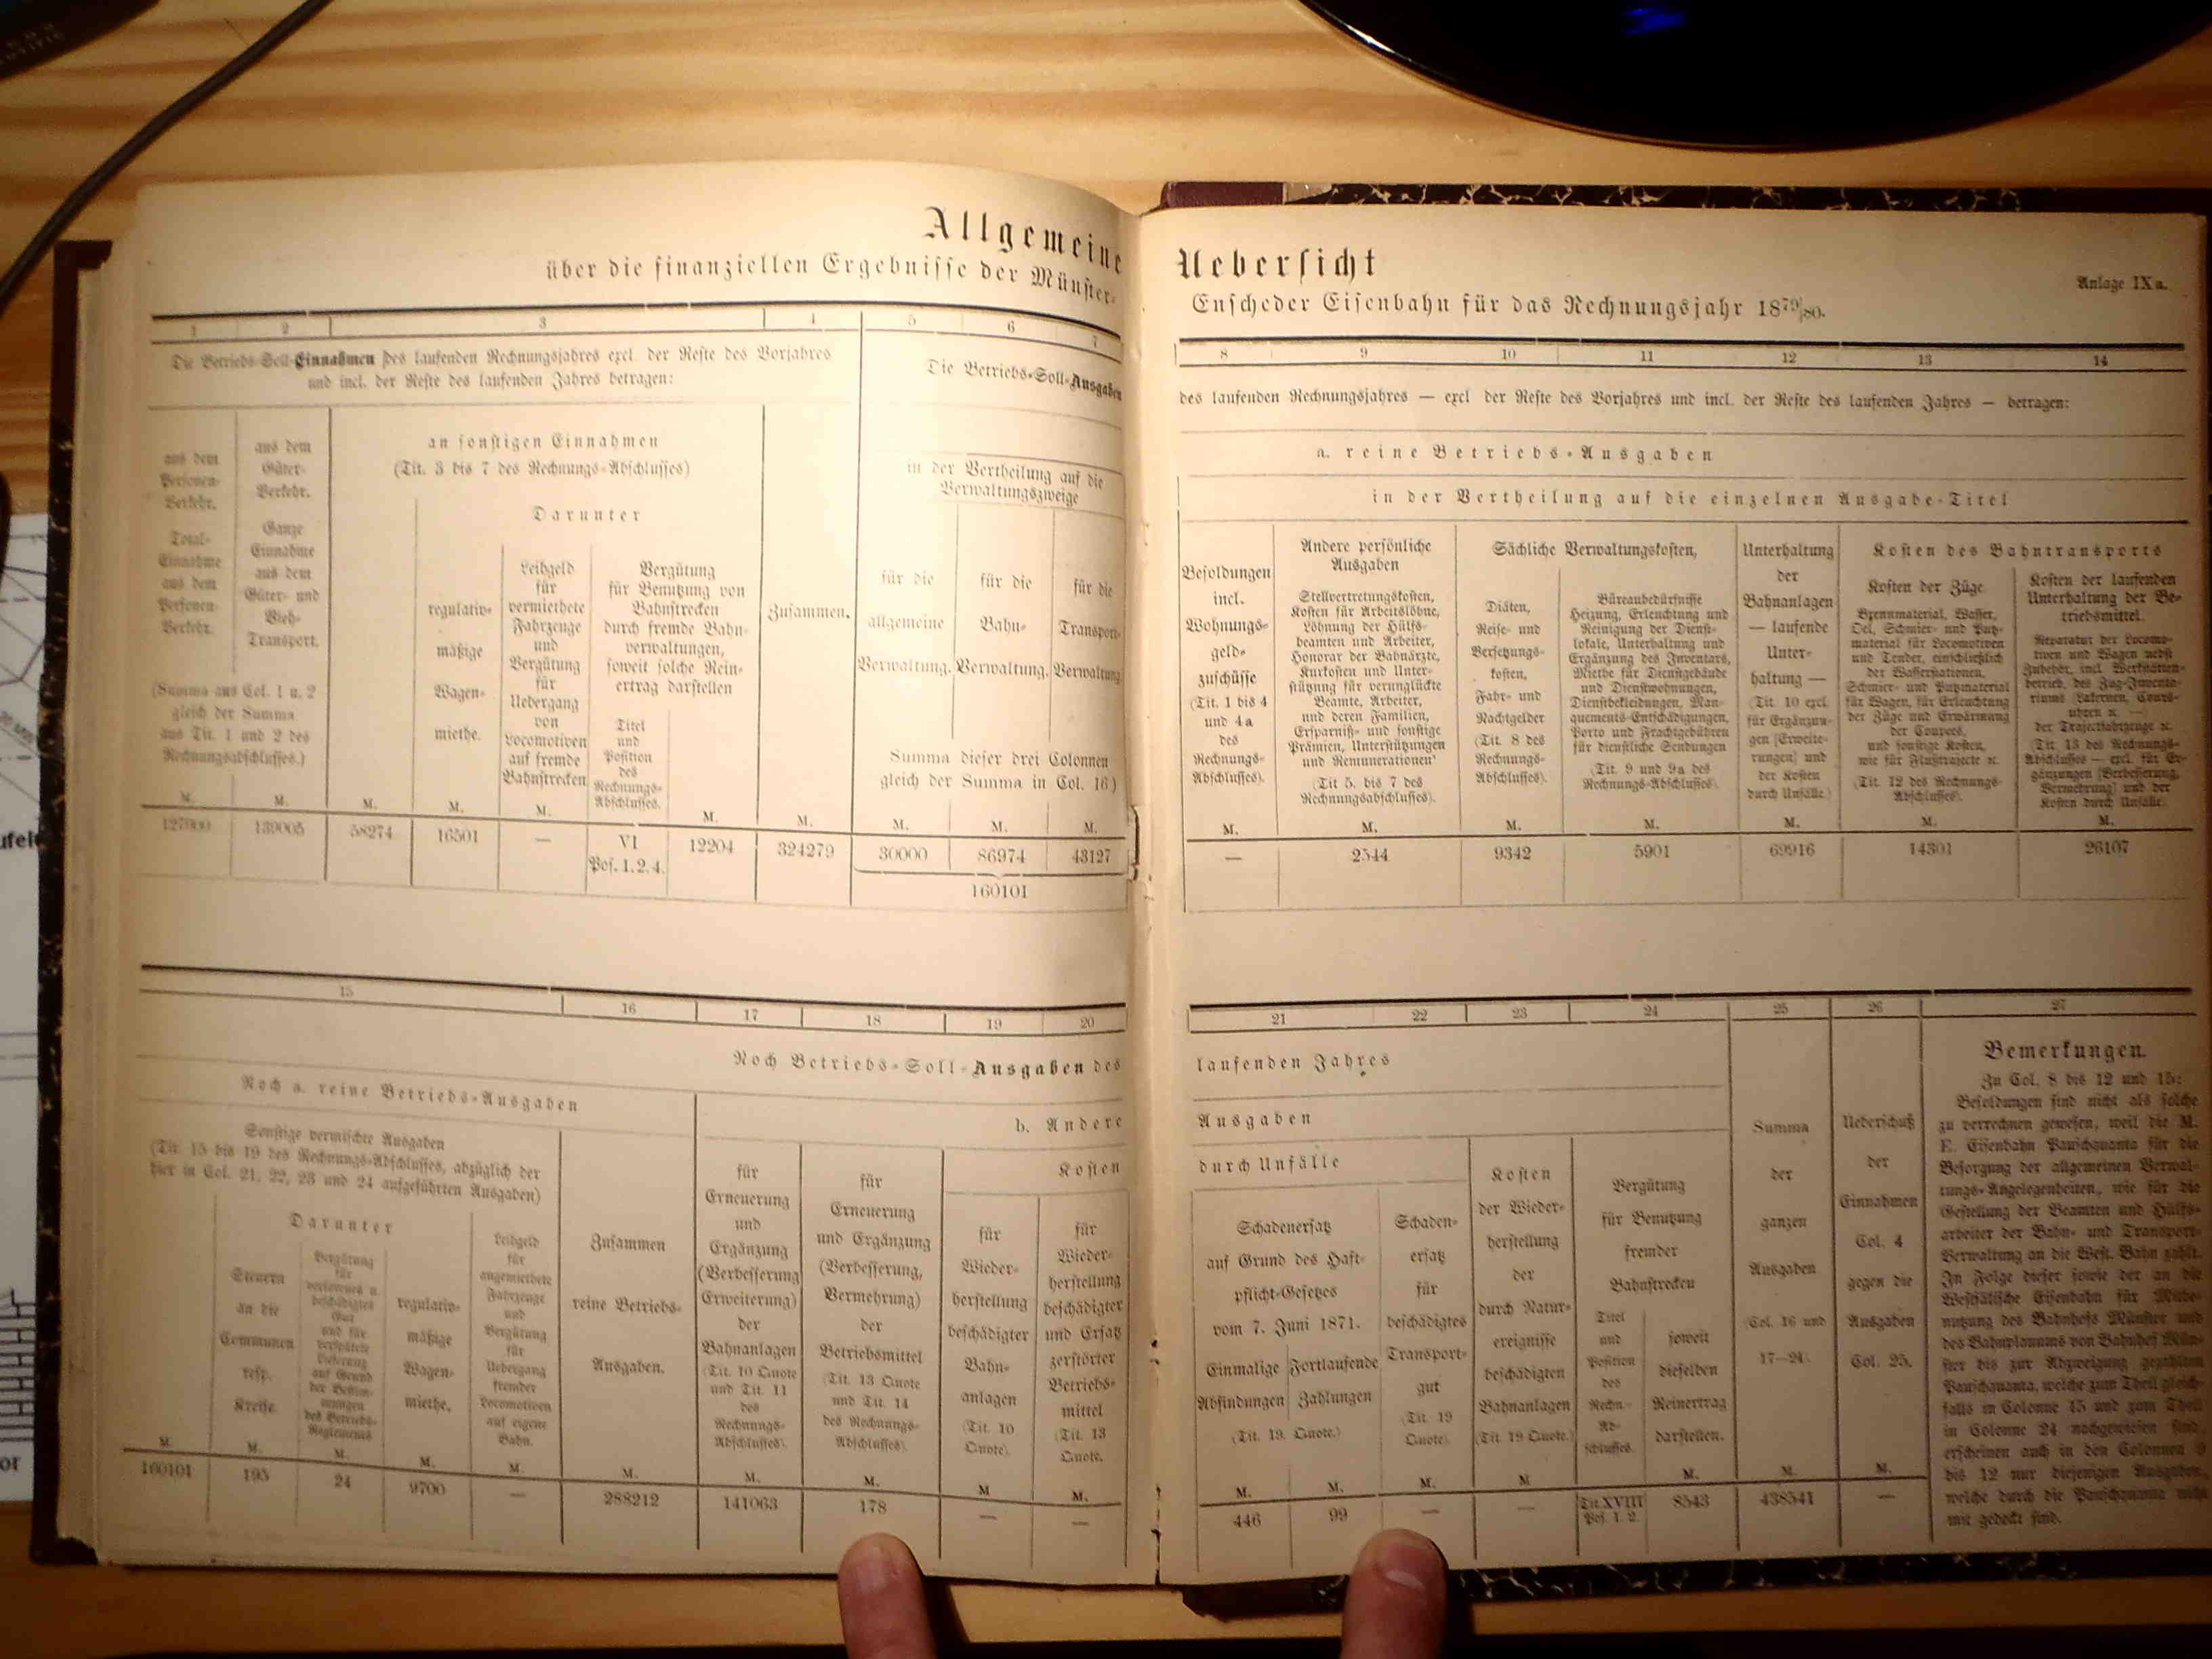 Allgemeine
über die finanziellen Ergebnisse der Münster-
1 2 3 4 5 6 7
Die Betriebs-Soll-Einnahmen des laufenden Rechnungsjahres excl. der Reste des Vorjahres
und incl. der Reste des laufenden Jahres betragen:
Die Betriebs-Soll-Ausgaben
aus dem
Personen-
Verkehr.
Total-
Einnahme
aus dem
Personen-
Verkehr.
aus dem
Güter-
Verkehr.
Ganze
Einnahme
aus dem
Güter- und
Vieh-
Transport.
(Summa aus Col. 1 u. 2
gleich der Summa
aus Tit. 1 und 2 des
Rechnungsabschlusses.)
an sonstigen Einnahmen
(Tit. 3 bis 7 des Rechnungs-Abschlusses)
Darunter
regulativ-
mäßige
Wagen-
miethe.
Leihgeld
für
vermiethete
Fahrzeuge
und
Vergütung
für
Uebergang
von
Locomotiven
auf fremde
Bahnstrecken
Vergütung
für Benutzung von
Bahnstrecken
durch fremde Bahn-
verwaltungen,
soweit solche Rein-
ertrag darstellen
Titel
und
Position
des
Rechnungs-
Abschlusses.
Zusammen.
in der Vertheilung auf die
Verwaltungszweige
für die
allgemeine
Verwaltung.
für die
Bahn-
Verwaltung.
für die
Transport-
Verwaltung
Summa dieser drei Colonnen
gleich der Summa in Col. 16)
M. M. M. M. M. M. M. M. M. M.
139005 58274 16501 — VI 12204 324279 30000 86974 43127
Pos. 1. 2. 4.
160101
15 16 17 18 19 20
Noch Betriebs-Soll-Ausgaben des
Noch a. reine Betriebs-Ausgaben
b. Andere
Sonstige vermischte Ausgaben
(Tit. 15 bis 19 des Rechnungs-Abschlusses, abzüglich der
hier in Col. 21, 22, 23 und 24 aufgeführten Ausgaben)
Darunter
Steuern
an die
Communen
resp.
Kreise
Vergütung
für
verlorenes u.
beschädigtes
Gut
und für
verspätete
Lieferung
auf Grund
der Bestim-
mungen
des Betriebs-
Reglements
regulativ-
mäßige
Wagen-
miethe.
Leihgeld
für
angemiethete
Fahrzeuge
und
Vergütung
für
Uebergang
fremder
Locomotiven
auf eigene
Bahn.
Zusammen
reine Betriebs-
Ausgaben.
für
Erneuerung
und
Ergänzung
(Verbesserung
Erweiterung)
der
Bahnanlagen
(Tit. 10 Quote
und Tit. 11
des
Rechnungs-
Abschlusses).
für
Erneuerung
und Ergänzung
(Verbesserung,
Vermehrung)
der
Betriebsmittel
(Tit. 13 Quote
und Tit. 14
des Rechnungs-
Abschlusses).
Kosten
für
Wieder-
herstellung
beschädigter
Bahn-
anlagen
(Tit. 10
Quote).
für
Wieder-
herstellung
beschädigter
und Ersatz
zerstörter
Betriebs-
mittel
(Tit. 13
Quote.
M. M. M. M. M. M. M. M. M M.
160101 195 24 9700 — 288212 141063 178 — —
Uebersicht
Anlage IXa.
Enscheder Eisenbahn für das Rechnungsjahr 1879/80.
8 9 10 11 12 13 14
des laufenden Rechnungsjahres — excl der Reste des Vorjahres und incl. der Reste des laufenden Jahres — betragen:
a. reine Betriebs-Ausgaben
in der Vertheilung auf die einzelnen Ausgabe-Titel
Besoldungen
incl.
Wohnungs-
geld-
zuschüsse
(Tit. 1 bis 4
und 4a
des
Rechnungs-
Abschlusses).
Andere persönliche
Ausgaben
Stellvertretungskosten,
Kosten für Arbeitslöhne,
Löhnung der Hülfs-
beamten und Arbeiter,
Honorar der Bahnärzte,
Kurkosten und Unter-
stützung für verunglückte
Beamte, Arbeiter,
und deren Familien,
Ersparniß- und sonstige
Prämien, Unterstützungen
und Remunerationen
(Tit 5. bis 7 des
Rechnungsabschlusses).
Sächliche Verwaltungskosten,
Diäten,
Reise- und
Versetzungs-
kosten,
Fahr- und
Nachtgelder
(Tit. 8 des
Rechnungs-
Abschlusses).
Büreaubedürfnisse
Heizung, Erleuchtung und
Reinigung der Dienst-
lokale, Unterhaltung und
Ergänzung des Inventars,
Miethe für Dienstgebäude
und Dienstwohnungen,
Dienstbekleidungen, Man-
quements-Entschädigungen,
Porto und Frachtgebühren
für dienstliche Sendungen
(Tit. 9 und 9a des
Rechnungs-Abschlusses).
Unterhaltung
der
Bahnanlagen
— laufende
Unter-
haltung —
(Tit. 10 excl.
für Ergänzun-
gen [Erweite-
rungen] und
der Kosten
durch Unfälle.)
Kosten des Bahntransports
Kosten der Züge.
Brennmaterial, Wasser,
Oel, Schmier- und Putz-
material für Locomotiven
und Tender, einschließlich
der Wasserstationen,
Schmier- und Putzmaterial
für Wagen, für Erleuchtung
der Züge und Erwärmung
der Coupees,
und sonstige Kosten,
wie für Flußtrajecte ꝛc.
(Tit. 12 des Rechnungs-
Abschlusses).
Kosten der laufenden
Unterhaltung der Be-
triebsmittel.
Reparatur der Locomo-
tiven und Wagen nebst
Zubehör, incl. Werkstätten-
betrieb, des Zug-Inventa-
riums Laternen, Cours-
uhren ꝛc. —
der Trajectfahrzeuge ꝛc.
(Tit. 13 des Rechnungs-
Abschlusses — excl. für Er-
gänzungen [Verbesserung,
Vermehrung] und der
Kosten durch Unfälle.
M. M. M. M. M. M. M.
— 2544 9342 5901 69916 14301 26107
21 22 23 24 25 26 27
laufenden Jahres
Ausgaben
durch Unfälle
Schadenersatz
auf Grund des Haft-
pflicht-Gesetzes
vom 7. Juni 1871.
Einmalige Fortlaufende
Abfindungen Zahlungen
(Tit. 19. Quote.)
Schaden-
ersatz
für
beschädigtes
Transport-
gut
(Tit. 19
Quote).
Kosten
der Wieder-
herstellung
der
durch Natur-
ereignisse
beschädigten
Bahnanlagen
(Tit. 19 Quote.)
Vergütung
für Benutzung
fremder
Bahnstrecken
Titel
und
Position
des
Rechn-
Ab-
schlusses.
soweit
dieselben
Reinertrag
darstellen.
Summa
der
ganzen
Ausgaben
Col. 16 und
17—24.
Ueberschuß
der
Einnahmen
Col. 4
gegen die
Ausgaben
Col. 25.
Bemerkungen.
Zu Col. 8 bis 12 und 15:
Besoldungen sind nicht als solche
zu verrechnen gewesen, weil die M.
E. Eisenbahn Pauschquanta für die
Besorgung der allgemeinen Verwal-
tungs-Angelegenheiten, wie für die
Gestellung der Beamten und Hülfs-
arbeiter der Bahn- und Transport-
Verwaltung an die West. Bahn zahlt.
In Folge dieser sowie der an die
Westfälische Eisenbahn für Mitbe-
nutzung des Bahnhofs Münster und
des Bahnplanums von Bahnhof Mün-
ster bis zur Abzweigung gezahlten
Pauschquanta, welche zum Theil gleich-
falls in Colonne 15 und zum Theil
in Colonne 24 nachgewiesen sind,
erscheinen auch in den Colonnen 9
bis 12 nur diejenigen Ausgaben,
welche durch die Pauschquanta nicht
mit gedeckt sind.
M. M. M. M M. M. M.
446 99 — — Tit. XVIII 8543 438541 —
Pos. 1. 2.